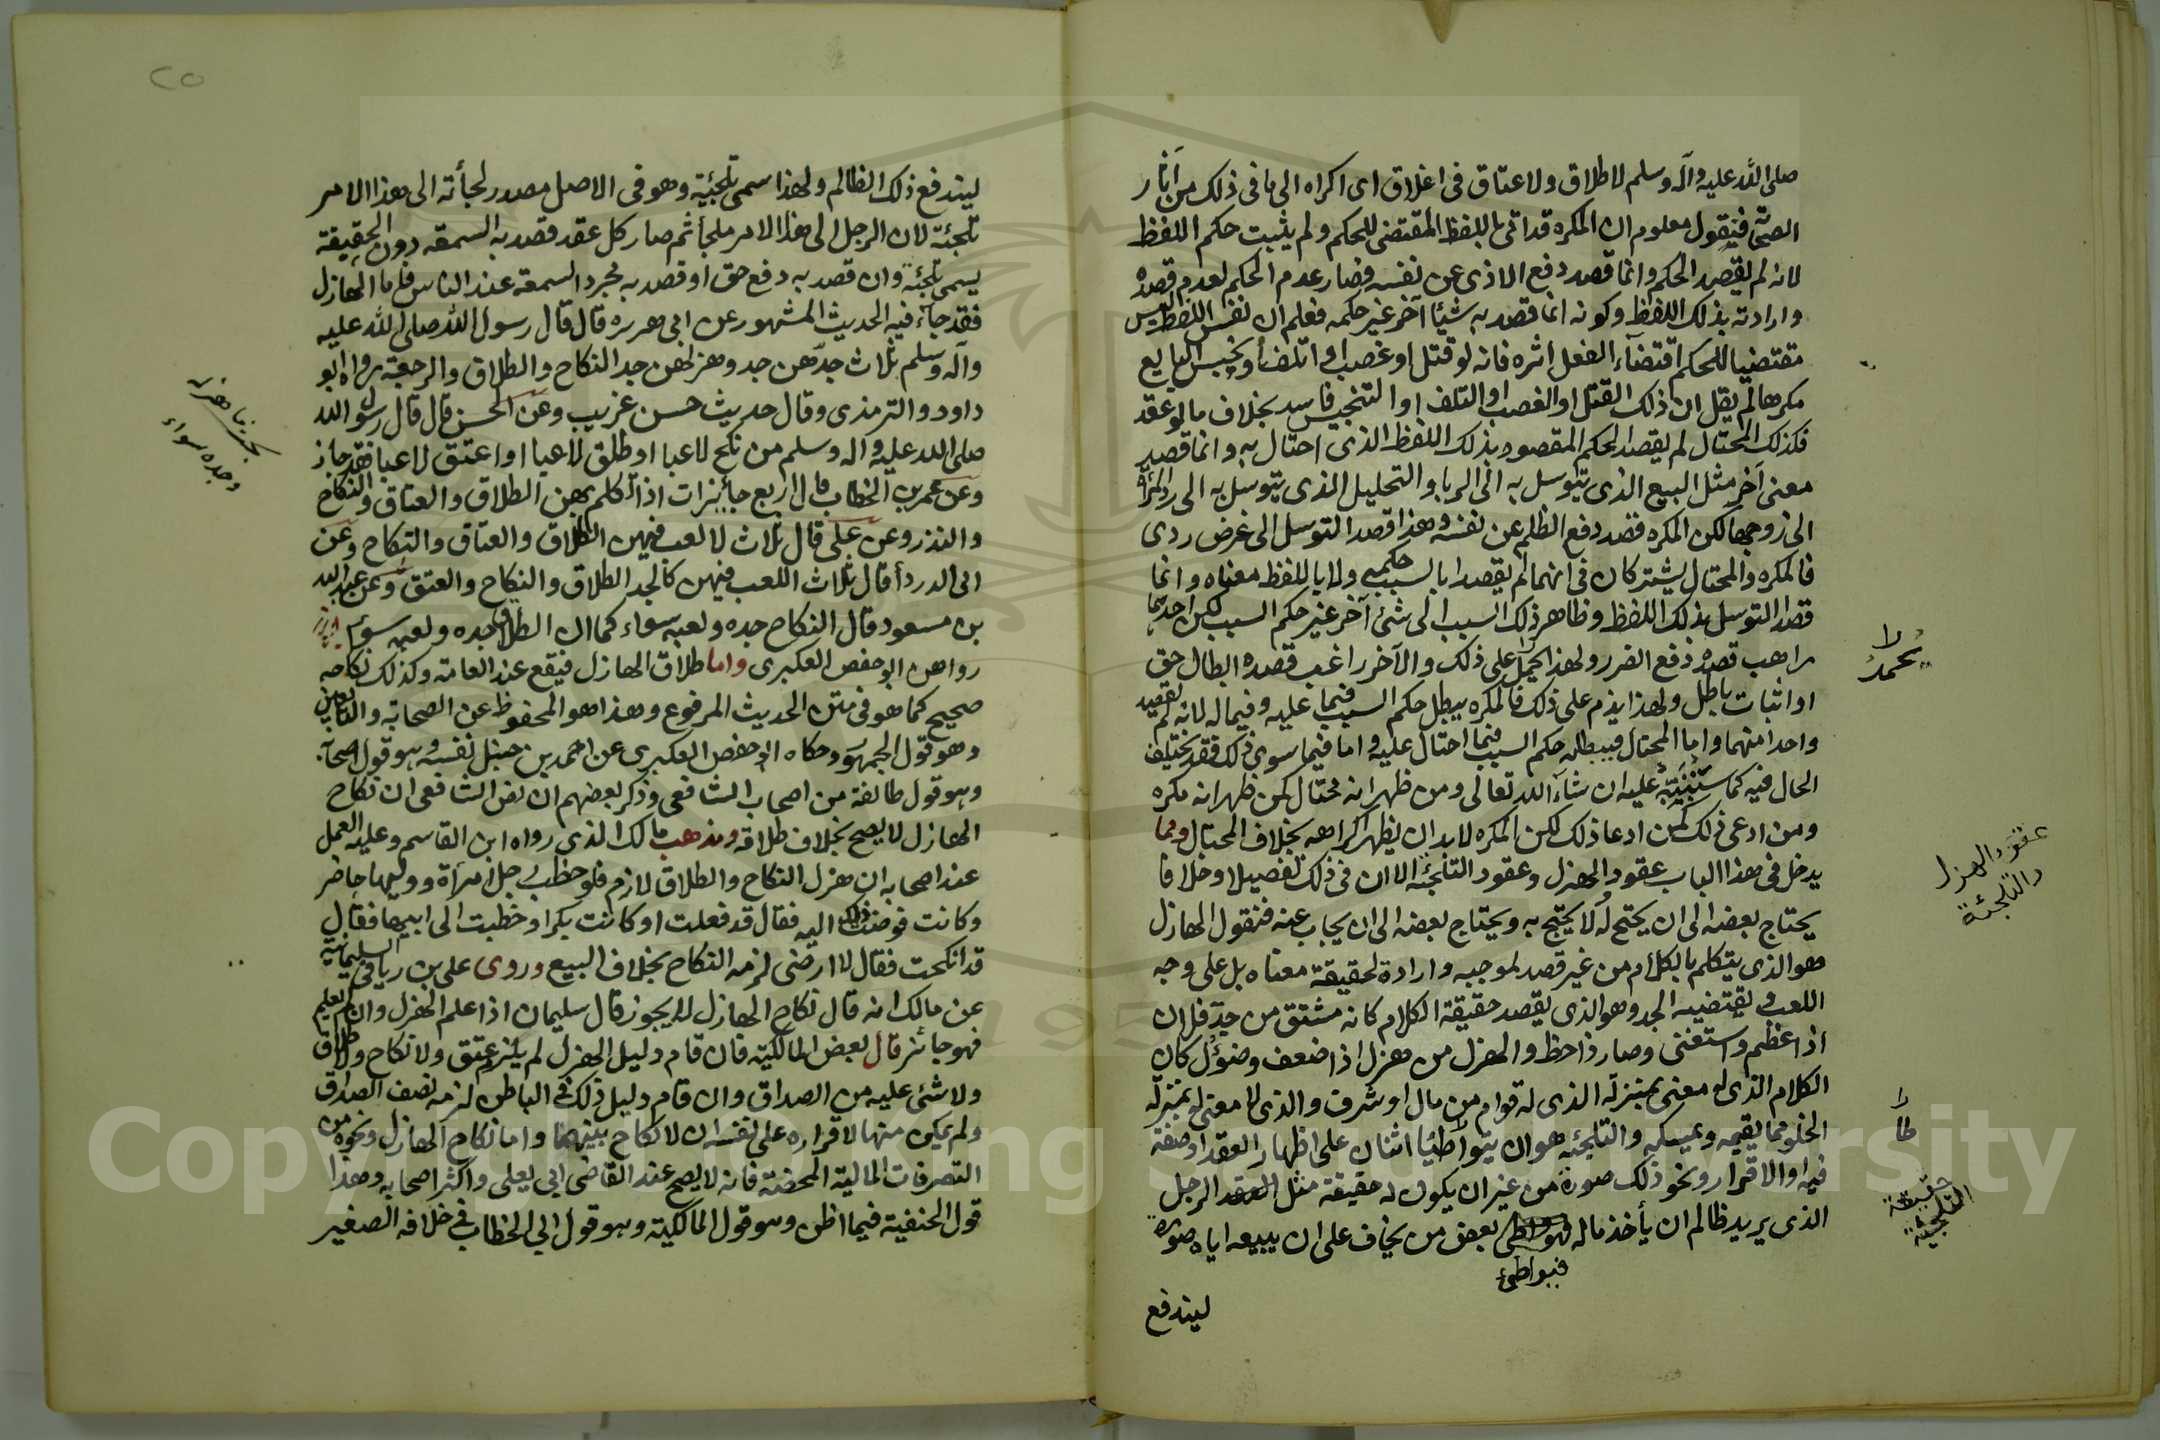 صلى الله عليه وآله وسلم لا طلاق ولا عتاق في اغلاق اى اكراه الى ما في ذلك من آثار
الصحابة فنقول معلوم ان المكره قد اتى باللفظ المقتضى للحكم ولم يثبت حكم اللفظ
لانه لم يقصد الحكم وانما قصد دفع الاذى عن نفسه فصار عدم الحكم لعدم قصده
وارادته بذلك اللفظ وكونه انما قصد به شيئا آخر غير حكمه فعلم ان نفس اللفظ ليس
مقتضيا للحكم اقتضآء الفعل اثره فانه لو قتل او غصب او اتلف او نجس البايع
مكرها لم يقل ان ذلك القتل او الغصب او التلف او التنجيس فاسد بخلاف ما لو عقد
فكذلك المحتال لم يقصد الحكم المقصود بذلك اللفظ الذى احتال به وانما قصد
معنى آخر مثل البيع الذى يتوسل به الى الربا والتحليل الذى يتوسل به الى رد المرأة
الى زوجها لكن المكره قصد دفع الظلم عن نفسه وهذا قصد التوسل الى غرض ردى
فالمكره والمحتال يشتركان فى انهما لم يقصدا بالسبب حكمه ولا باللفظ معناه وانما
قصدا التوسل بذلك اللفظ وظاهر ذلك السبب الى شئ آخر غير حكم السبب لكن احدهما
راهب قصده دفع الضرر ولهذا يحمل على ذلك والآخر راغب قصده ابطال حق
او اثبات باطل ولهذا يذم على ذلك فالمكره يبطل حكم السبب فيما عليه وفيما له لانه لم يقصد
واحدا منهما واما المحتال فيبطل حكم السبب فيما احتال عليه واما فيما سوى ذلك فقد يختلف
الحال فيه كما سننبه عليه ان شآء الله تعالى ومن ظهر انه محتال كمن ظهر انه مكره
ومن ادعى ذلك كمن ادعا ذلك لكن المكره لابد ان يظهر اكراهه بخلاف المحتال ومما
يدخل في هذا الباب عقود الهزل وعقود التلجئه الا ان في ذلك تفصيلا وخلافا
يحتاج بعضه الى ان يحتج له لا يحتج به ويحتاج بعضه الى ان يجاب عنه فنقول الهازل
هو الذى يتكلم بالكلام من غير قصد لموجبه وارادة لحقيقة معناه بل على وجه
اللعب ويقتضيه الجد وهو الذى يقصد حقيقة الكلام كانه مشتق من جد فلان
اذا عظم واستغنى وصار ذا حظ والهزل من هزل اذا ضعف وضؤل كان
الكلام الذى له معنى بمنزلة الذى له قوام من مال او شرف والذى لا معنى له بمنزلة
الخلو مما يقيمه ويمسكه والتلجئه هو ان يتواطئا اثنان على اظهار العقد او صفة
فيه او الاقرار ونحو ذلك صورة من غير ان يكون له حقيقة مثل الرجل
الذى يريد ظالم ان يأخذ ماله فهواطى بعض من يخاف على ان يبيعه اياه صورة
فيواطئ
ليندفع
لا
يحمد
عقود الهزل
والتلجئة
ط
حقيقة
التلجئة
٢٥
ليندفع ذلك الظالم ولهذا سمى تلجئية وهو فى الاصل مصدر لجأته الى هذا الامر
تلجئة لان الرجل الى هذا الامر ملجأ ثم صار كل عقد قصد به السمعة دون الحقيقة
يسمى تلجئة وان قصد به دفع حق او قصد به مجرد السمعة عند الناس فاما الهازل
فقد جآء فيه الحديث المشهور عن ابى هريره قال قال رسول الله صلى الله عليه
وآله وسلم ثلاث جدهن جد وهزلهن جد النكاح والطلاق والرجعة رواه ابو
داود والترمذى وقال حديث حسن غريب وعن الحسن قال قال رسول الله
صلى الله عليه واله وسلم من نكح لاعبا او طلق لاعبا او اعتق لاعبا فقد جاز
وعن عمر بن الخطاب قال اربع جآئزات اذا تكلم بهن الطلاق والعتاق والنكاح
والنذر وعن على قال ثلاث لا لعب فيهن الطلاق والعتاق والنكاح وعن
ابى الدردأ قال ثلاث اللعب فيهن كالجد الطلاق والنكاح والعتق وعن عبد الله
بن مسعود قال النكاح جده ولعبه سواء كما ان الطلاق جده ولعبه سواء
رواهن ابو حفص العكبرى واما طلاق الهازل فيقع عند العامة وكذلك نكاحه
صحيح كما هو فى متن الحديث المرفوع وهذا هو المحفوظ عن الصحابة والتابعين
وهو قول الجمهور وحكاه ابو حفص العكبرى عن احمد بن حنبل نفسه وهو قول اصحابه
وهو قول طائفة من اصحاب الشافعى وذكر بعضهم ان نص الشافعى ان نكاح
الهازل لا يصح بخلاف طلاقه ومذهب مالك الذى رواه ابن القاسم وعليه العمل
عند اصحابه ان هزل النكاح والطلاق لازم فلو خطب رجل امرأة ووليها حاضر
وكانت فوضت ذلك اليه فقال قد فعلت او كانت بكرا وخطبت الى ابيها فقال
قد انكحت فقال لا ارضى لزمه النكاح بخلاف البيع وروى على بن زياد فى السليمانية
عن مالك انه قال نكاح الهازل لا يجوز قال سليمان اذا علم الهزل وان لم يعلم
فهو جائز قال بعض المالكية فان قام دليل الهزل لم يلزم عتق ولا نكاح ولا طلاق
ولا شئ عليه من الصداق وان قام دليل ذلك فى الباطن لزمه نصف الصداق
ولم يمكن منها لاقراره على نفسه ان لا نكاح بينهما واما نكاح الهازل ونحوه من
التصرفات المالية المحضة فانه لا يصح عند القاضى ابى يعلى واكثر اصحابه وهذا
قول الحنفية فيما اظن وهو قول المالكية وهو قول ابى الخطاب فى خلافه الصغير
وجده سواء
Copyright © King Saud University
195